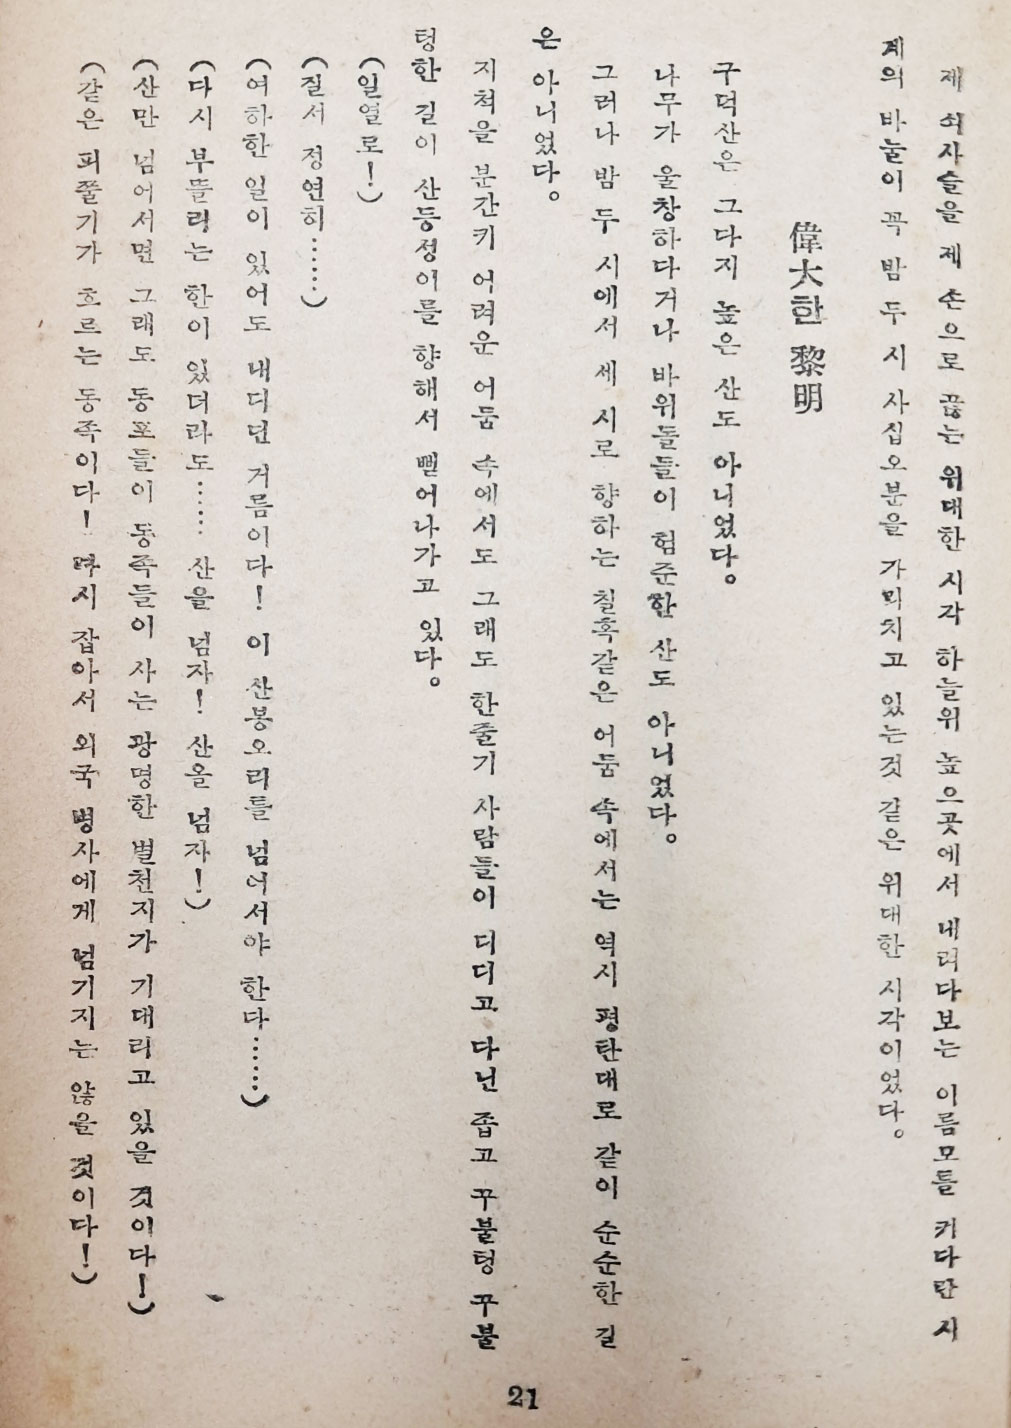 제 쇠사슬을 제 손으로 끊는 위대한 시각 하늘위 높으곳에서 내려다보는 이름모를 커다란 시
계의 바눌이 꼭 밤 두 시 사십오분을 가리치고 있는것 같은 위대한 시각이었다。
偉大한 黎明
구덕산은 그다지 높은 산도 아니었다。
나무가 울창하다거나 바위돌들이 험준한 산도 아니었다。
그러나 밤 두 시에서 세 시로 향하는 칠흑같은 어둠 속에서는 역시 평탄대로 같이 순순한 길
은 아니었다。
지척을 분간키 어려운 어둠 속에서도 그래도 한줄기 사람들이 디디고 다닌 좁고 꾸불텅 꾸불
텅한 길이 산등성이를 향해서 뻗어나가고 있다。
(일열로!)
(질서 정연히……)
(여하한 일이 있어도 내디딘 거름이다! 이 산봉오리를 넘어서야 한다……)
(다시 부뜰리는 한이 있더라도…… 산을 넘자! 산을 넘자!)
(산만 넘어서면 그래도 동포들이 동족들이 사는 광명한 별천지가 기대리고 있을 것이다!)
(같은 피쭐기가 흐르는 동족이다! 다시 잡아서 외국 병사에게 넘기지는 않을 것이다!)
21